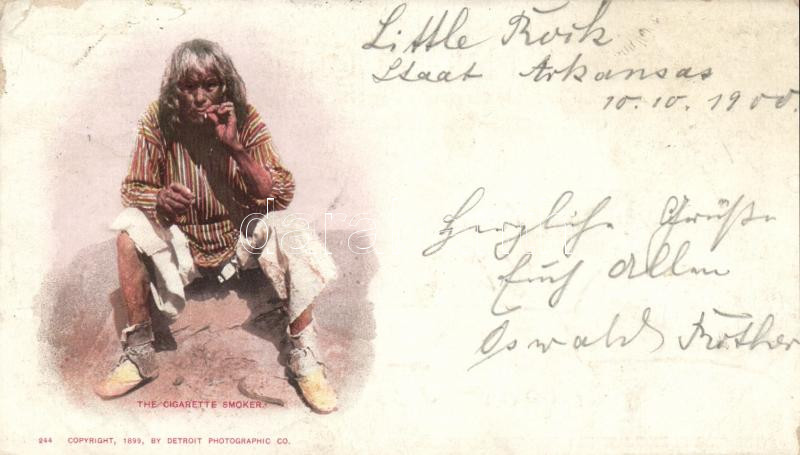 Little Rock
Staat Arkansas
10.10.1900.
Herzliche Grüße
Euch Allen
Oswald
THE CIGARETTE SMOKER.
244 COPYRIGHT, 1899, BY DETROIT PHOTOGRAPHIC CO.